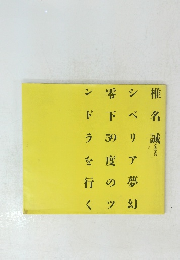 椎名誠
シベリア夢幻
零下59度のツ
ンドラを行く